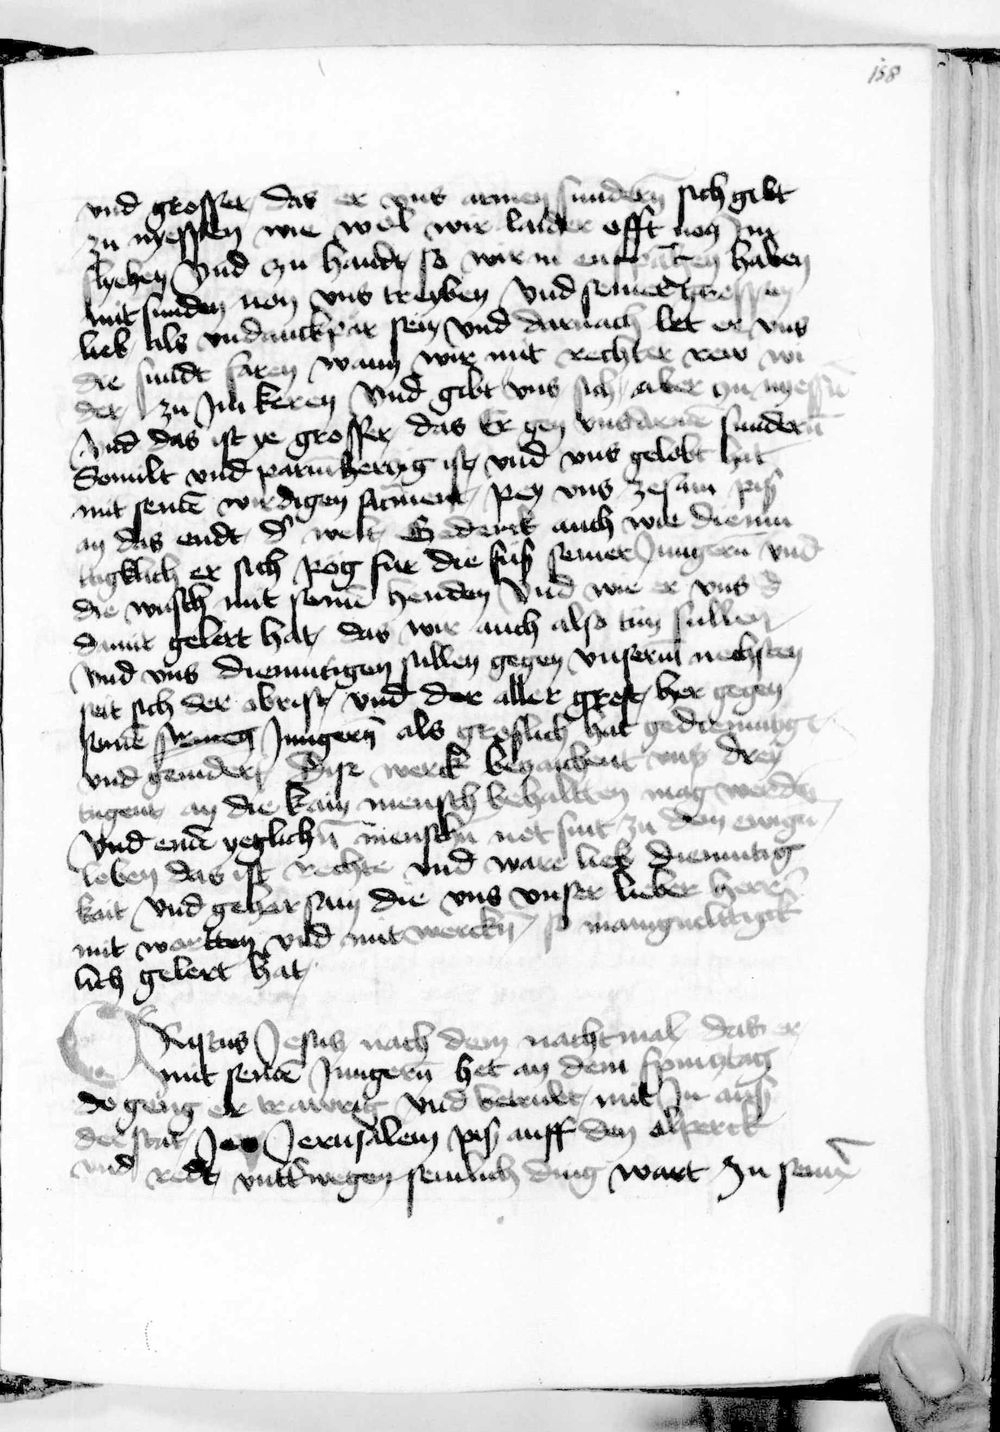 158
vnd grosser das er vns armen sundern̄ sich gebt
zu nyessen wie wol wir laider offt von Jm
flyehen Vnd zu handt so wir in enpfangen haben
mit sunden von vns treyben Vnd seiner grossen
lieb als vndanckpar sein Vnd darnach let er vns
die sundt faren wann wir mit rechter rew wi
der zu Jm keren Vnd gebt vns sich aber zu nyessn̄
Vnd das ist ye grosser das Er gen vns armē sundern̄
So milt vnd parmhertzig ist vnd vns gelobt hat
mit seinē wirdigen sacrament pey vns zesein piß
an das endt dˀ welt Gedenck auch wie diemu
tigklich er sich pög fur die füß seiner Jungern̄ vnd
die wusch mit seinē henden Vnd wie er vns d
damit gelert hat das wir auch also tun sullen
Vnd vns diemutigen sullen gegen vnserm̄ nechsten
seit sich der obrist vnd der aller grost her gegen
seinē armen Jungern̄ als groslich hat gediemutigt
vnd gemdert Dise werck bezaichent vns drey
tugent an die kain mensch behalten mag werden
Vnd einē yeglichn̄ menschn̄ not sint zu dem ewign̄
leben das ist rechte vnd ware lieb diemutig
kait Vnd gehorsam die vns vnser lieber herr
mit wortten vnd mit werckn̄ so manigueltigk
lich gelert hat
CRistus Jesus nach dem nachtmal das er
mit seinē Jungern̄ het an dem
do geng er trawrig Vnd betrubt mit Jn auß
der stat Jerusalem piß auff den olperck
vnd redt vntterwegen semlich ding wart zu seinē